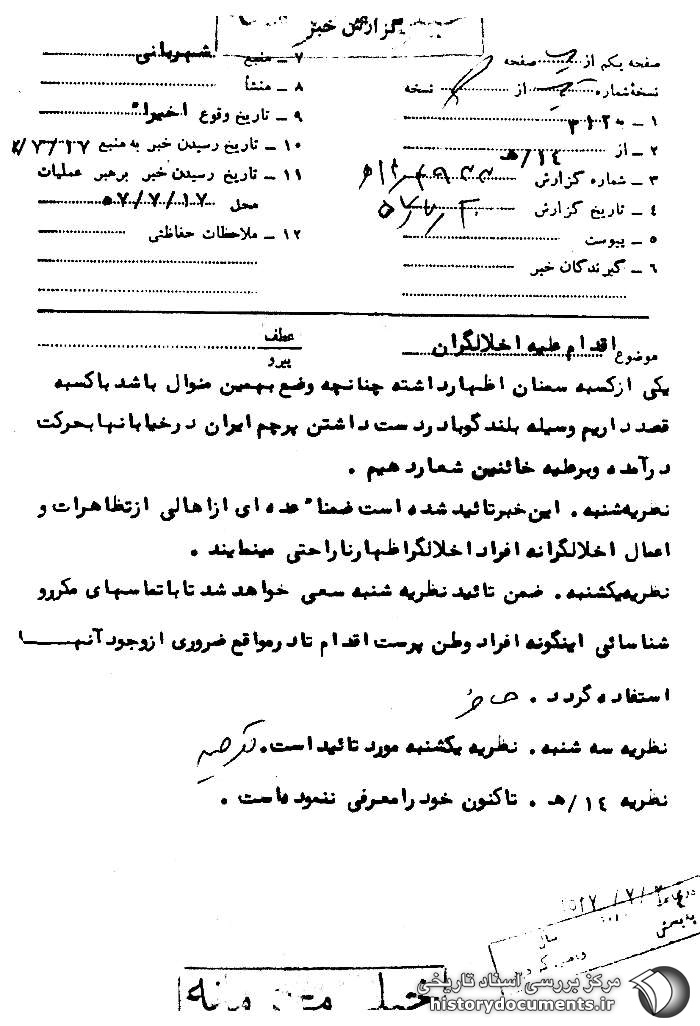 گزارش خبر
صفحه یکم از صفحه
نسخهٔ شماره از نسخه
۱ – به ۳۱۲
۲ – از ۱۴/هـ
۳ – شماره گزارش
۴ – تاریخ گزارش
۵ – پیوست
۶ – گیرندگان خبر
۷ – منبع شهربانی
۸ – منشأ
۹ – تاریخ وقوع اخیراً
۱۰ – تاریخ رسیدن خبر به منبع ۷/۱۷
۱۱ – تاریخ رسیدن خبر برهبر عملیات
محل ۵۷/۷/۱۷
۱۲ – ملاحظات حفاظتی
موضوع اقدام علیه اخلالگران
عطف
پیرو
یکی ازکسبه سمنان اظهارداشته چنانچه وضع بهمین منوال باشد باکسبه
قصد داریم وسیله بلندگو بادردست داشتن پرچم ایران درخیابانها بحرکت
درآمده و برعلیه خائنین شعاردهیم .
نظریه شنبه . این خبرتائید شده است ضمناً عده ای ازاهالی ازتظاهرات و
اعمال اخلالگرانه افراد اخلالگراظهارناراحتی مینمایند .
نظریه یکشنبه . ضمن تائید نظریه شنبه سعی خواهد شد تا باتماسهای مکررو
شناسائی اینگونه افراد وطن پرست اقدام تادرمواقع ضروری ازوجود آنها
استفاده گردد .
نظریه سه شنبه . نظریه یکشنبه مورد تائید است .
نظریه ۱۴/هـ . تاکنون خود را معرفی ننموده است .
خیلی محرمانه
مرکز بررسی اسناد تاریخی
historydocuments.ir